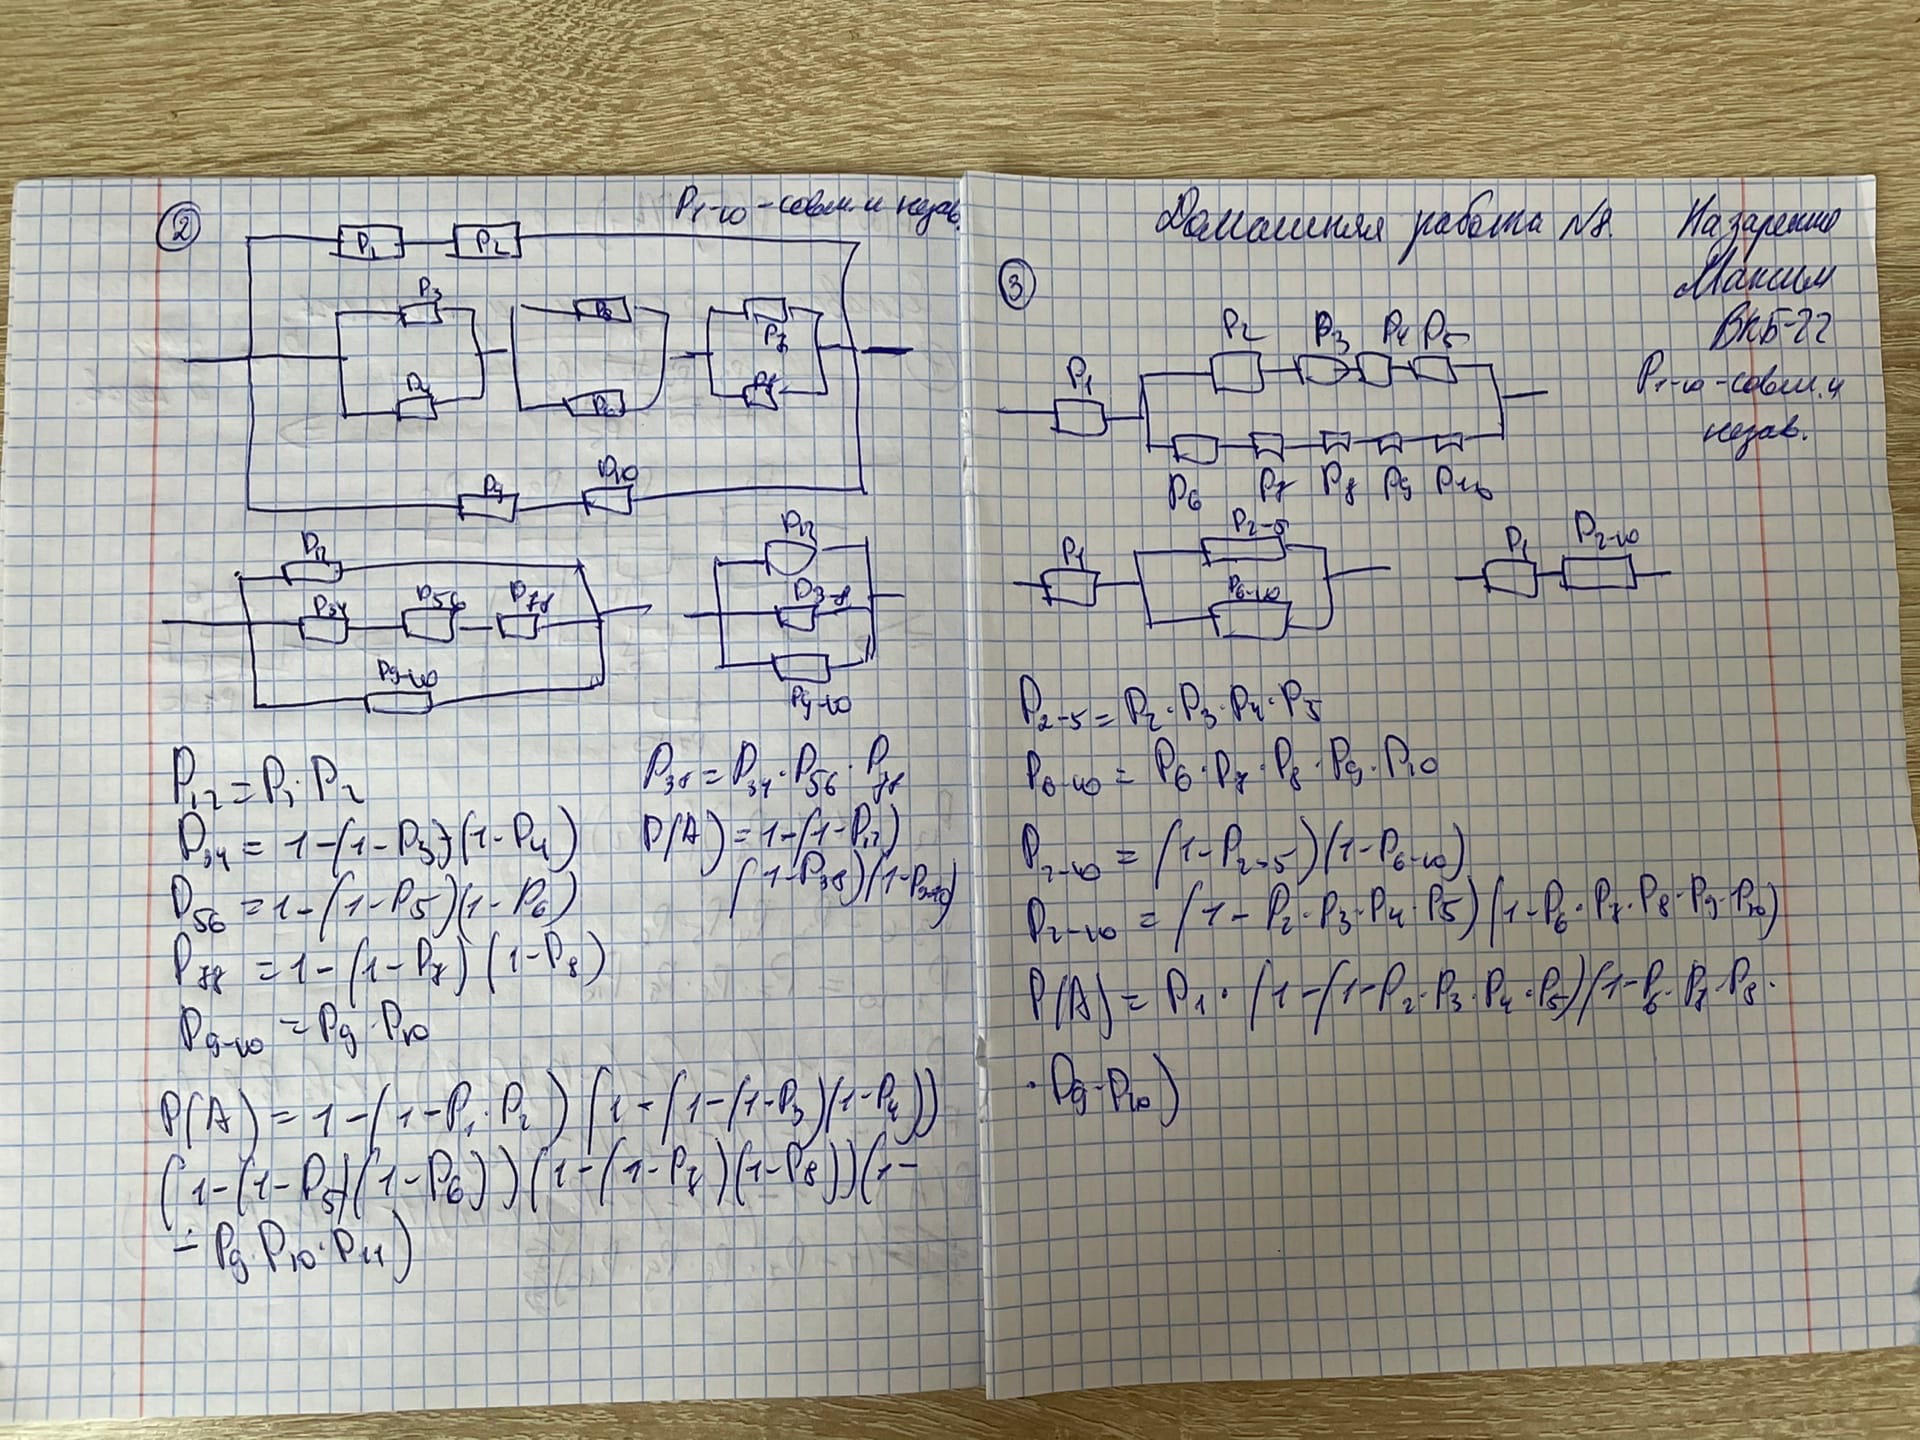 ② P₁₋₁₀ - совм. и незав.
P₁ P₂
P₃ P₅
P₇
P₄ P₆ P₈
P₉ P₁₀
P₁₂
P₃₄ P₅₆ P₇₈
P₉₋₁₀
P₁₂
P₃₋₈
P₉₋₁₀
P₁₂ = P₁ · P₂
P₃₄ = 1-(1-P₃)(1-P₄)
P₅₆ = 1-(1-P₅)(1-P₆)
P₇₈ = 1-(1-P₇)(1-P₈)
P₉₋₁₀ = P₉ · P₁₀
P₃₈ = P₃₄ · P₅₆ · P₇₈
P(A) = 1-(1-P₁₂)
(1-P₃₈)(1-P₉₋₁₀)
P(A) = 1-(1-P₁·P₂)(1-(1-(1-P₃)(1-P₄))
(1-(1-P₅)(1-P₆))(1-(1-P₇)(1-P₈))(1-
- P₉·P₁₀·P₁₁)
Домашняя работа №8. Назаренко
Максим
ВКБ-22
P₁₋₁₀ - совм. и
незав.
③
P₁ P₂ P₃ P₄ P₅
P₆ P₇ P₈ P₉ P₁₀
P₁ P₂₋₅
P₆₋₁₀
P₁ P₂₋₁₀
P₂₋₅ = P₂ · P₃ · P₄ · P₅
P₆₋₁₀ = P₆ · P₇ · P₈ · P₉ · P₁₀
P₂₋₁₀ = (1-P₂₋₅)(1-P₆₋₁₀)
P₂₋₁₀ = (1-P₂·P₃·P₄·P₅)(1-P₆·P₇·P₈·P₉·P₁₀)
P(A) = P₁·(1-(1-P₂·P₃·P₄·P₅)(1-P₆·P₇·P₈·
·P₉·P₁₀)